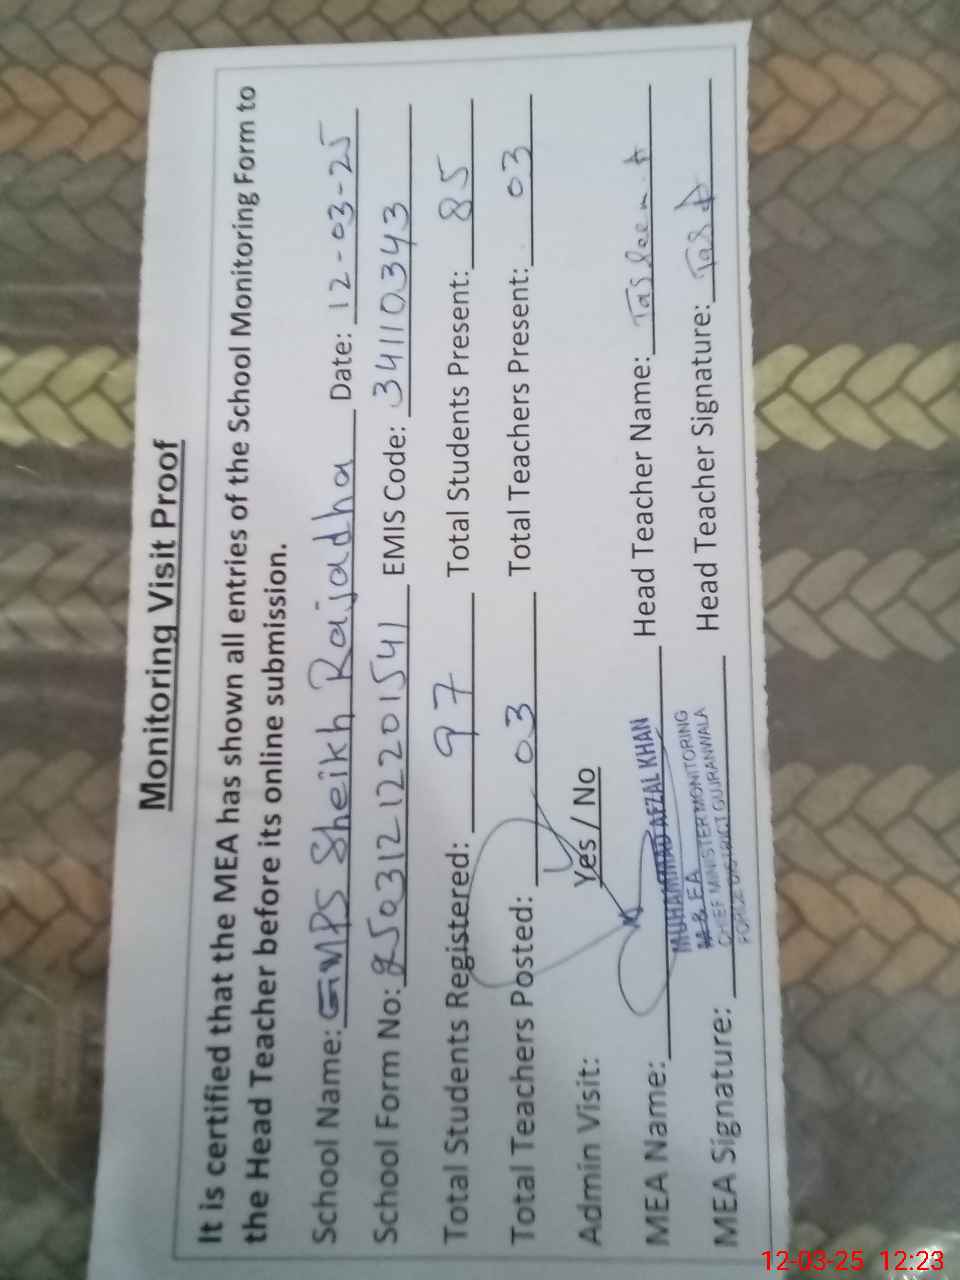 Monitoring Visit Proof
It is certified that the MEA has shown all entries of the School Monitoring Form to
the Head Teacher before its online submission.
School Name: GMPS Sheikh Rajadha Date: 12-03-25
School Form No: 25031212201541 EMIS Code: 34110343
Total Students Registered: 97 Total Students Present: 85
Total Teachers Posted: 03 Total Teachers Present: 03
Admin Visit: Yes / No
MEA Name: MUHAMMAD AFZAL KHAN Head Teacher Name: Tasleem. A
M & E A
CHIEF MINISTER MONITORING
FORCE DISTRICT GUJRANWALA
MEA Signature: Head Teacher Signature:
12-03-25 12:23